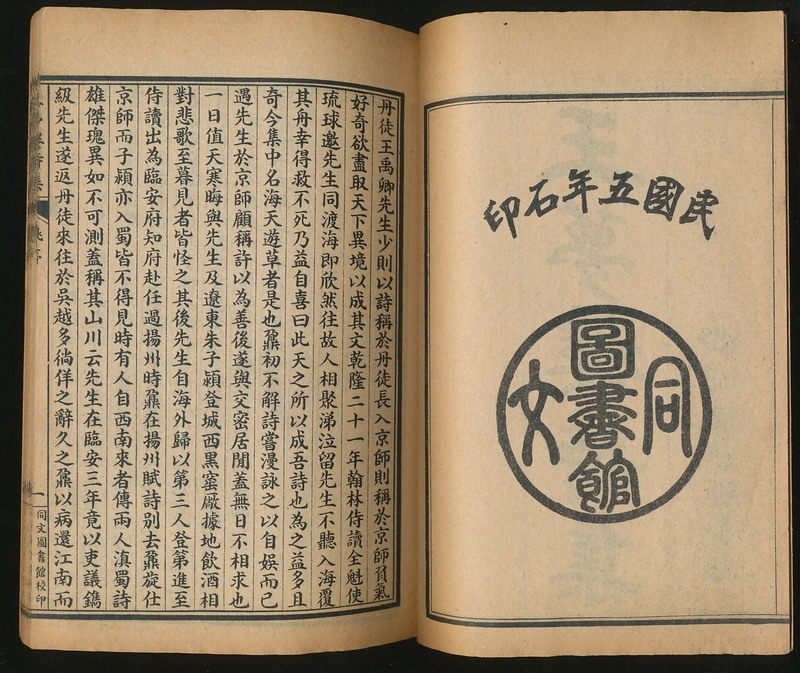 民國五年石印
同文
圖書館
丹徒王禹卿先生少則以詩稱於丹徒長入京師則稱於京師負氣
好奇欲盡取天下異境以成其文乾隆二十一年翰林侍讀全魁使
琉球邀先生同渡海即欣然往故人相聚涕泣留先生不聽入海覆
其舟幸得救不死乃益自喜曰此天之所以成吾詩也為之益多且
奇今集中名海天遊草者是也鼐初不解詩嘗漫詠之以自娛而已
遇先生於京師顧稱許以為善後遂與交密居閒蓋無日不相求也
一日值天寒晦與先生及遼東朱子潁登城西黑窰廠據地飲酒相
對悲歌至暮見者皆怪之其後先生自海外歸以第三人登第進至
侍讀出為臨安府知府赴任過揚州時鼐在揚州賦詩別去鼐旋仕
京師而子潁亦入蜀皆不得見時有人自西南來者傳兩人滇蜀詩
雄傑瑰異如不可測蓋稱其山川云先生在臨安三年竟以吏議鐫
級先生遂返丹徒來往於吳越多徜徉之辭久之鼐以病還江南而
一
同文圖書館校印